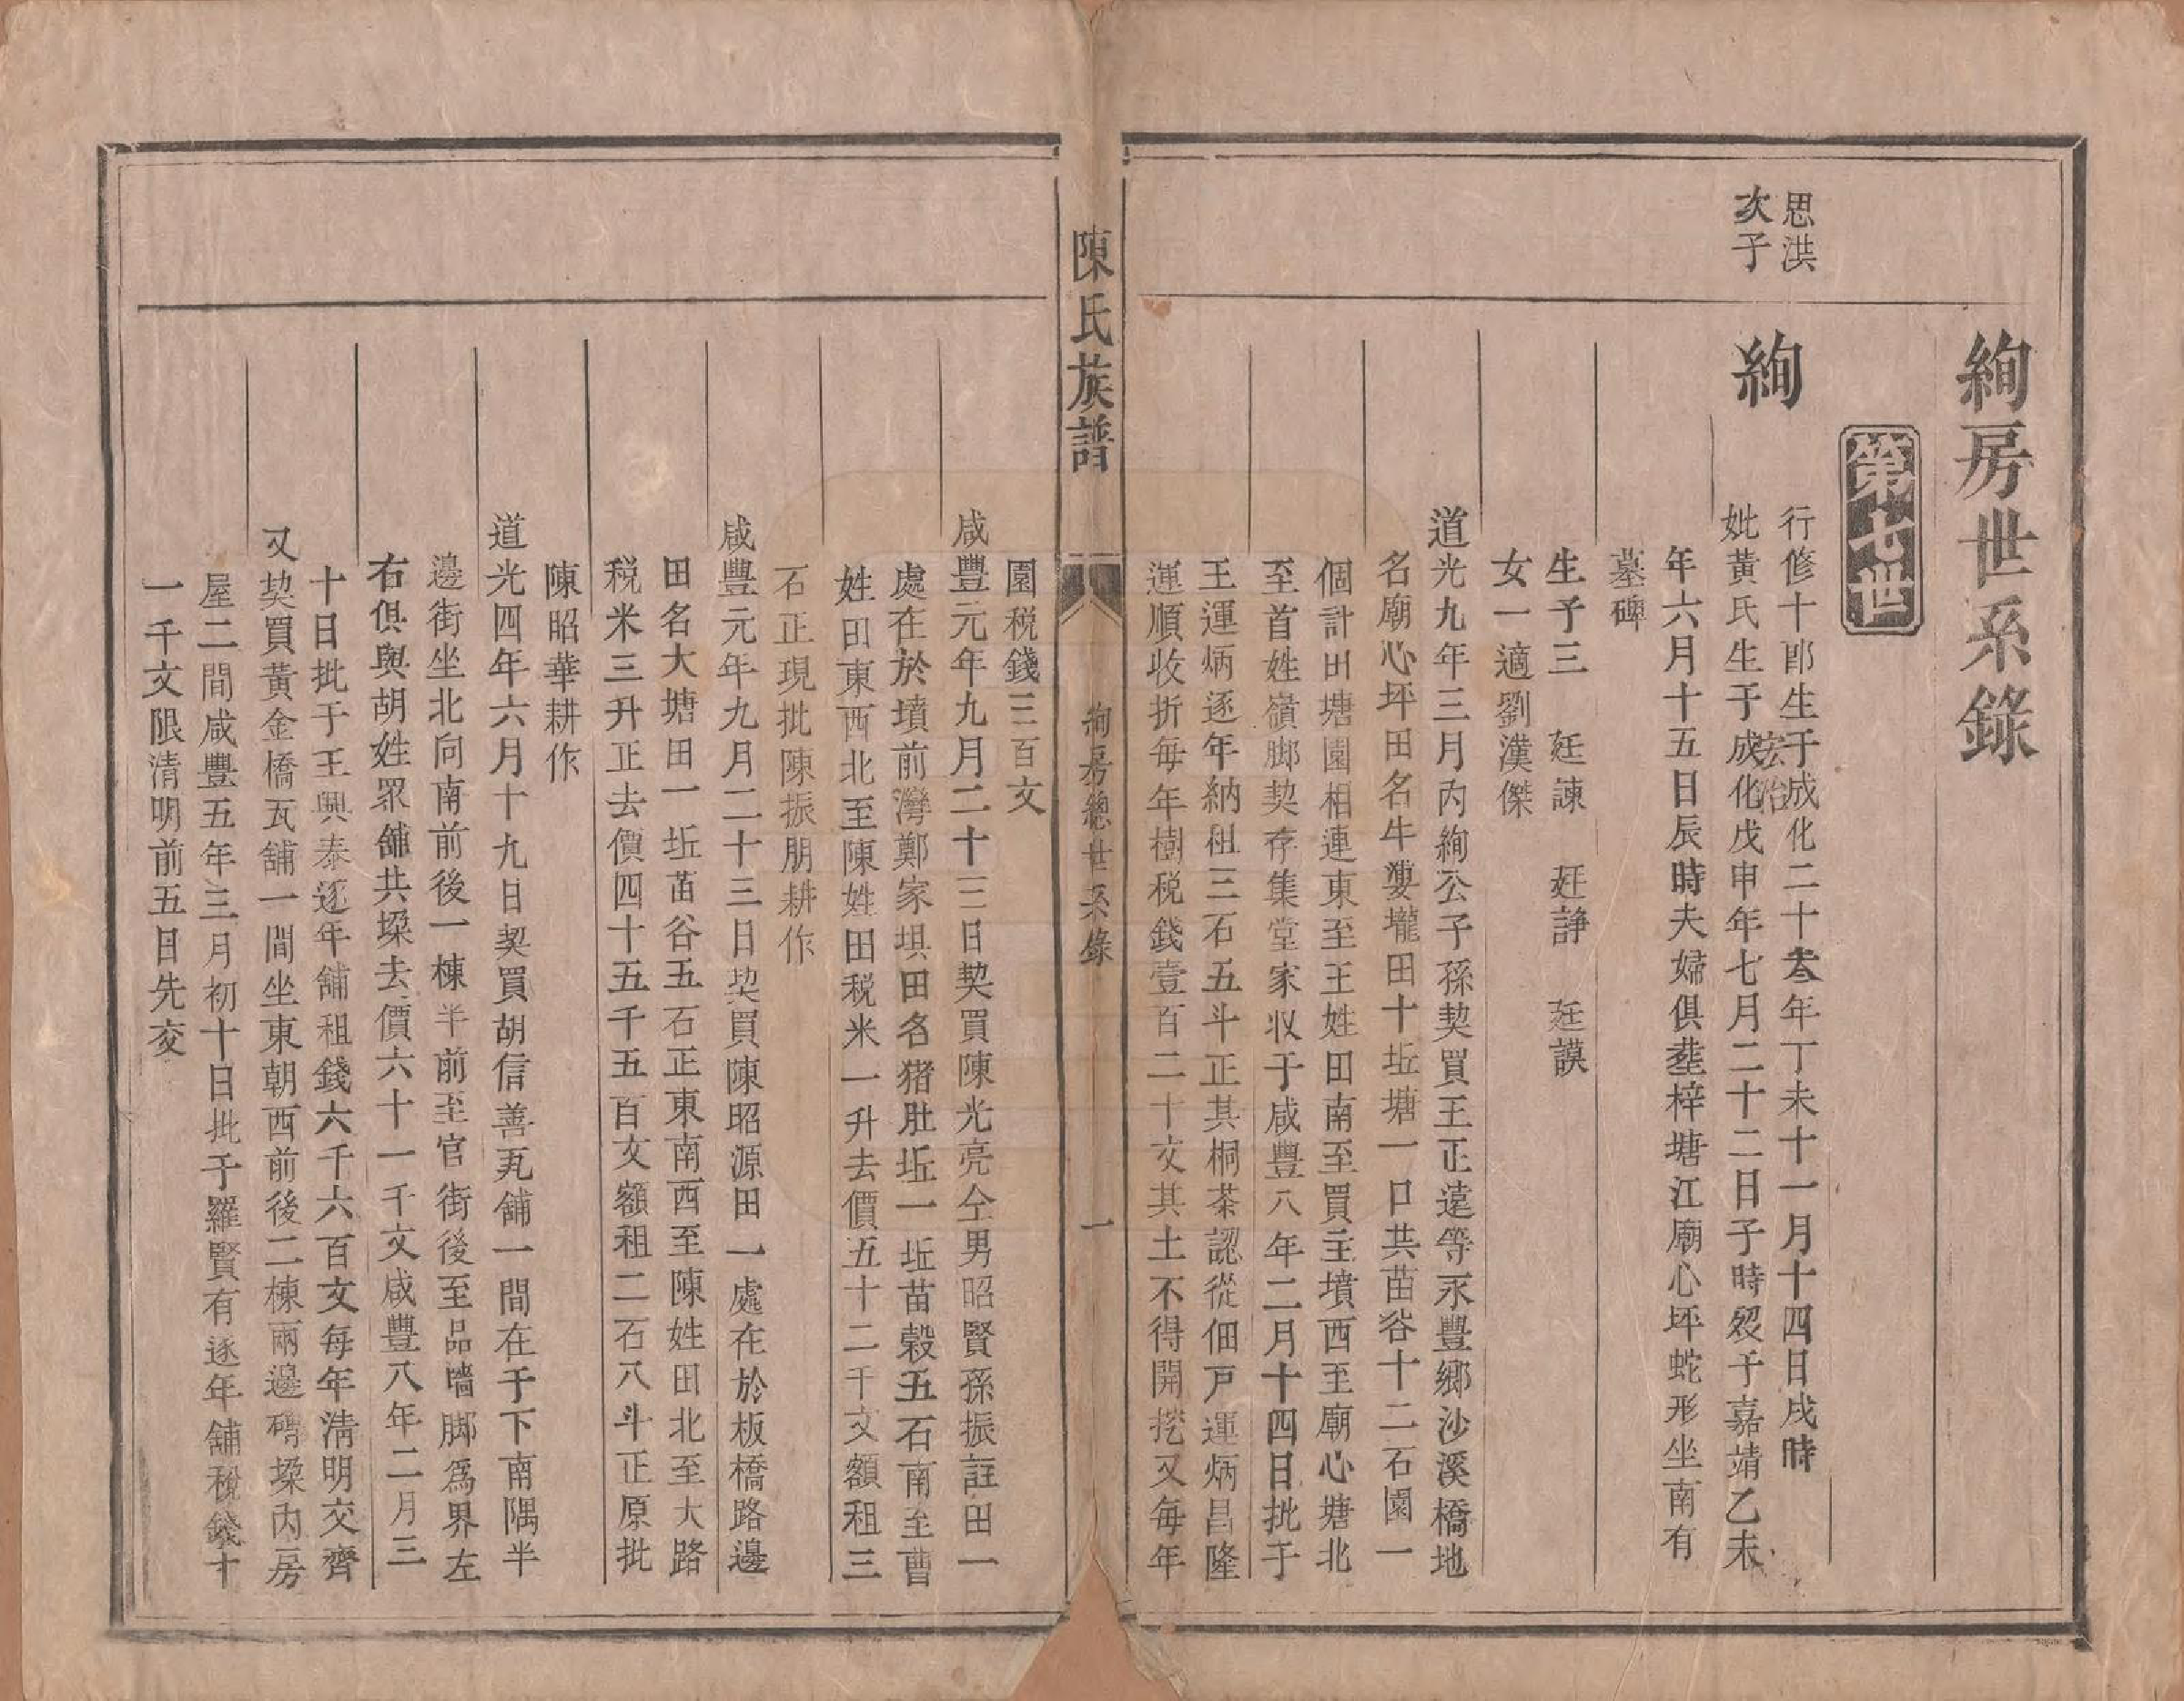 絢房世系錄
第七世
思洪
次子
絢
行修十郎生于成化二十叁年丁未十一月十四日戌時
妣黃氏生于成化戊申年七月二十二日子時歿于嘉靖乙未
宏治
年六月十五日辰時夫婦俱塟梓塘江廟心坪蛇形坐南有
墓碑
生子三 廷諫 廷諍 廷謨
女一適劉漢傑
道光九年三月內絢公子孫契買王正遠等永豐鄉沙溪橋地
名廟心坪田名牛婁壠田十坵塘一口共苗谷十二石園一
個計田塘園相連東至王姓田南至買主墳西至廟心塘北
至首姓嶺脚契存集堂家収于咸豐八年二月十四日批于
王運炳逐年納租三石五斗正其桐茶認從佃戸運炳昌隆
運順收折每年樹税錢壹百二十文其土不得開挖又每年
陳氏族譜
絢房總世系錄
一
園税錢三百文
咸豐元年九月二十三日契買陳光亮仝男昭賢孫振註田一
處在於墳前灣鄭家垻田名猪肚坵一坵苗穀五石南至曹
姓田東西北至陳姓田税米一升去價五十二千文額租三
石正現批陳振朋耕作
咸豐元年九月二十三日契買陳昭源田一處在於板橋路邊
田名大塘田一坵苗谷五石正東南西至陳姓田北至大路
税米三升正去價四十五千五百文額租二石八斗正原批
陳昭華耕作
道光四年六月十九日契買胡信善瓦舖一間在于下南隅半
邊街坐北向南前後一棟半前至官街後至品墻脚爲界左
右俱與胡姓眾舖共墚去價六十一千文咸豐八年二月三
十日批于王興泰逐年舖租錢六千六百文每年清明交齊
又契買黃金橋瓦舖一間坐東朝西前後二棟兩邊磚墚內房
屋二間咸豐五年三月初十日批于羅賢有逐年舖税錢十
一千文限清明前五日先交